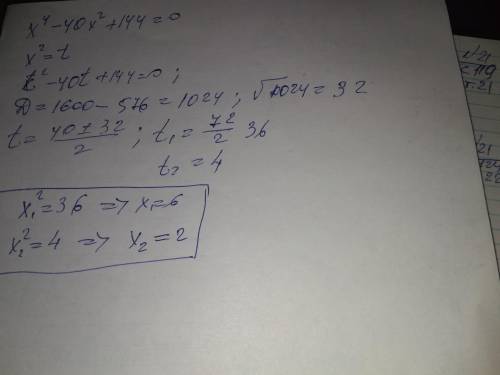 x⁴-40x²+144=0
x²=t
t²-40t+144=0;
D=1600-576=1024; √1024=32
t=(40±32)/2; t₁=72/2 36
t₂=4
x₁²=36 => x₁=6
x₂²=4 => x₂=2